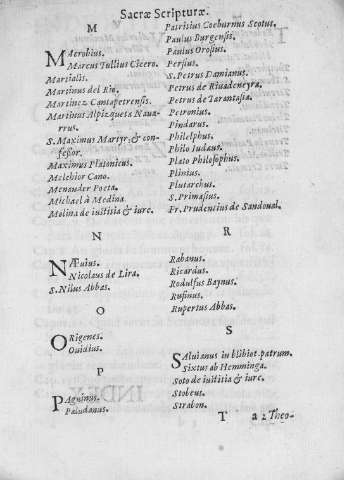 Sacræ Scripturæ.
M
MAcrobius.
Marcus Tullius Cicero.
Martialis.
Martinus del Rio.
Martinez Cantapetrensis.
Martinus Alpizqueta Naua-
rrus.
S. Maximus Martyr, & con-
fessor.
Maximus Platonicus.
Melchior Cano.
Menander Poeta.
Michael à Medina.
Molina de iustitia & iure.
N
NÆuius.
Nicolaus de Lira.
S. Nilus Abbas.
O
ORigenes.
Ouidius.
P
PAgninus.
Paludanus.
Patritius Coeburnus Scotus.
Paulus Burgensis.
Paulus Orosius.
Persius.
S. Petrus Damianus.
Petrus de Riuadeneyra.
Petrus de Tarantasia.
Petronius.
Pindarus.
Philelphus.
Philo Iudæus.
Plato Philosophus.
Plinius.
Plutarchus.
S. Primasius.
Fr. Prudencius de Sandoual.
R
Rabanus.
Ricardus.
Rodulfus Baynus.
Rufinus.
Rupertus Abbas.
S
SAluianus in bibliot. patrum.
Sixtus ab Hemminga.
Soto de iustitia & iure.
Stobeus.
Strabon.
T a 2 Theo-